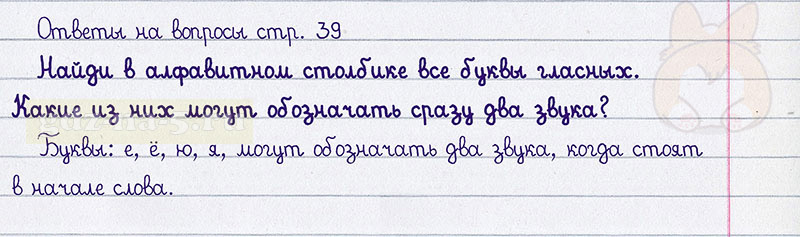 Ответы на вопросы стр. 39
Найди в алфавитном столбике все буквы гласных.
Какие из них могут обозначать сразу два звука?
Буквы: е, ё, ю, я, могут обозначать два звука, когда стоят
в начале слова.